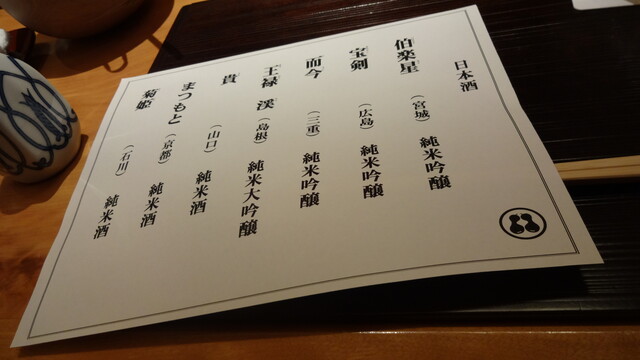 日本酒
伯楽星 (宮城) 純米吟醸
宝剣 (広島) 純米吟醸
而今 (三重) 純米吟醸
王禄 渓 (島根) 純米大吟醸
貴 (山口) 純米酒
まつもと (京都) 純米酒
菊姫 (石川) 純米酒